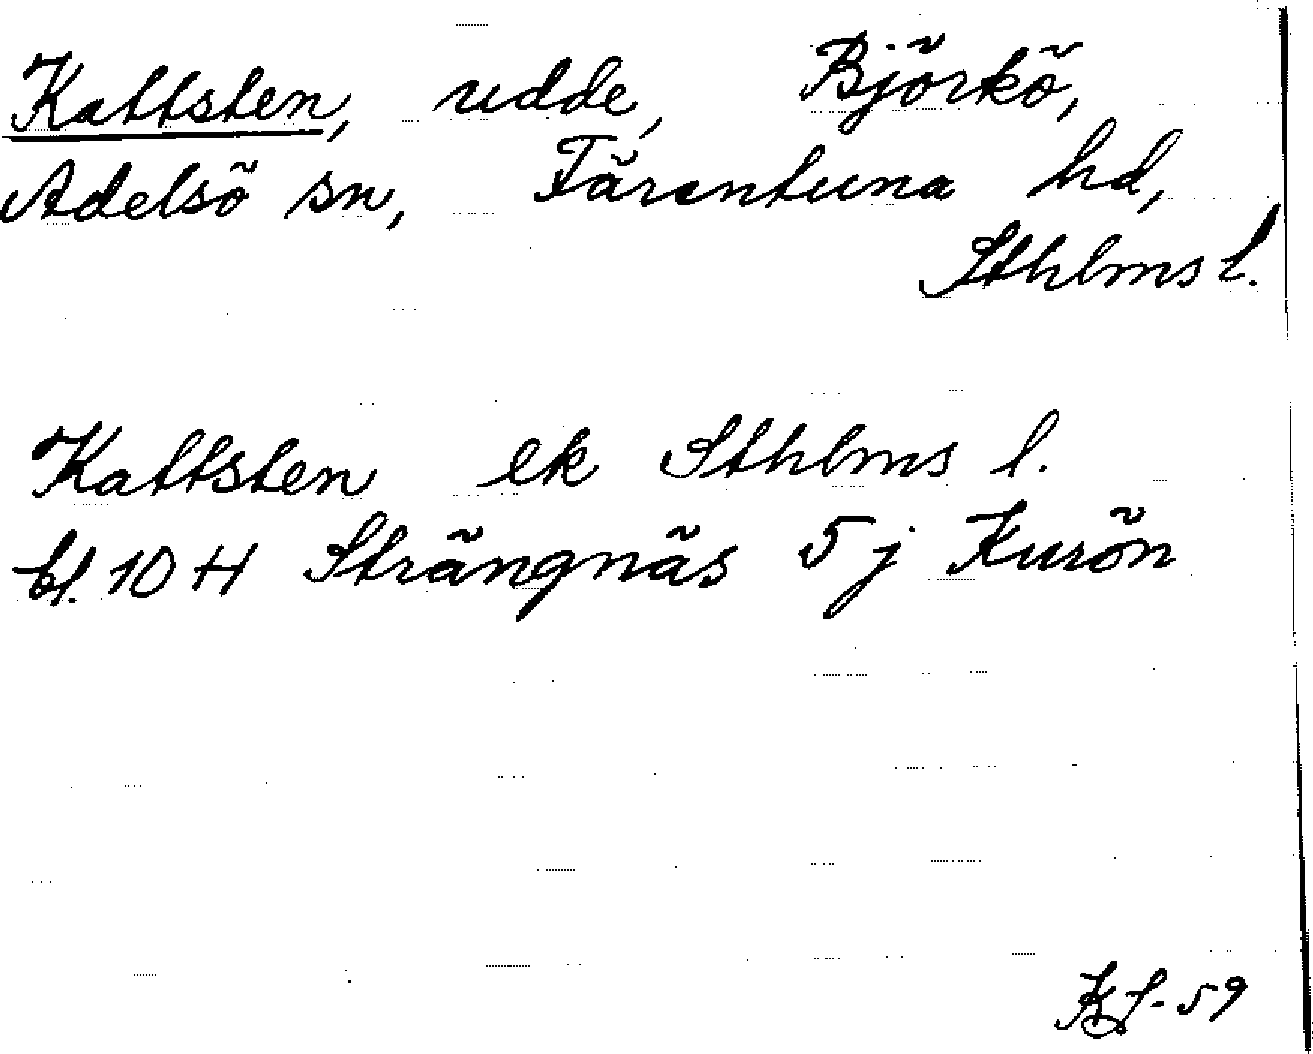 Kattsten, udde, Björkö,
Adelsö sn, Färentuna hd,
Sthlms l.
Kattsten ek Sthlms l.
bl. 10 H Strängnäs 5 j Kurön